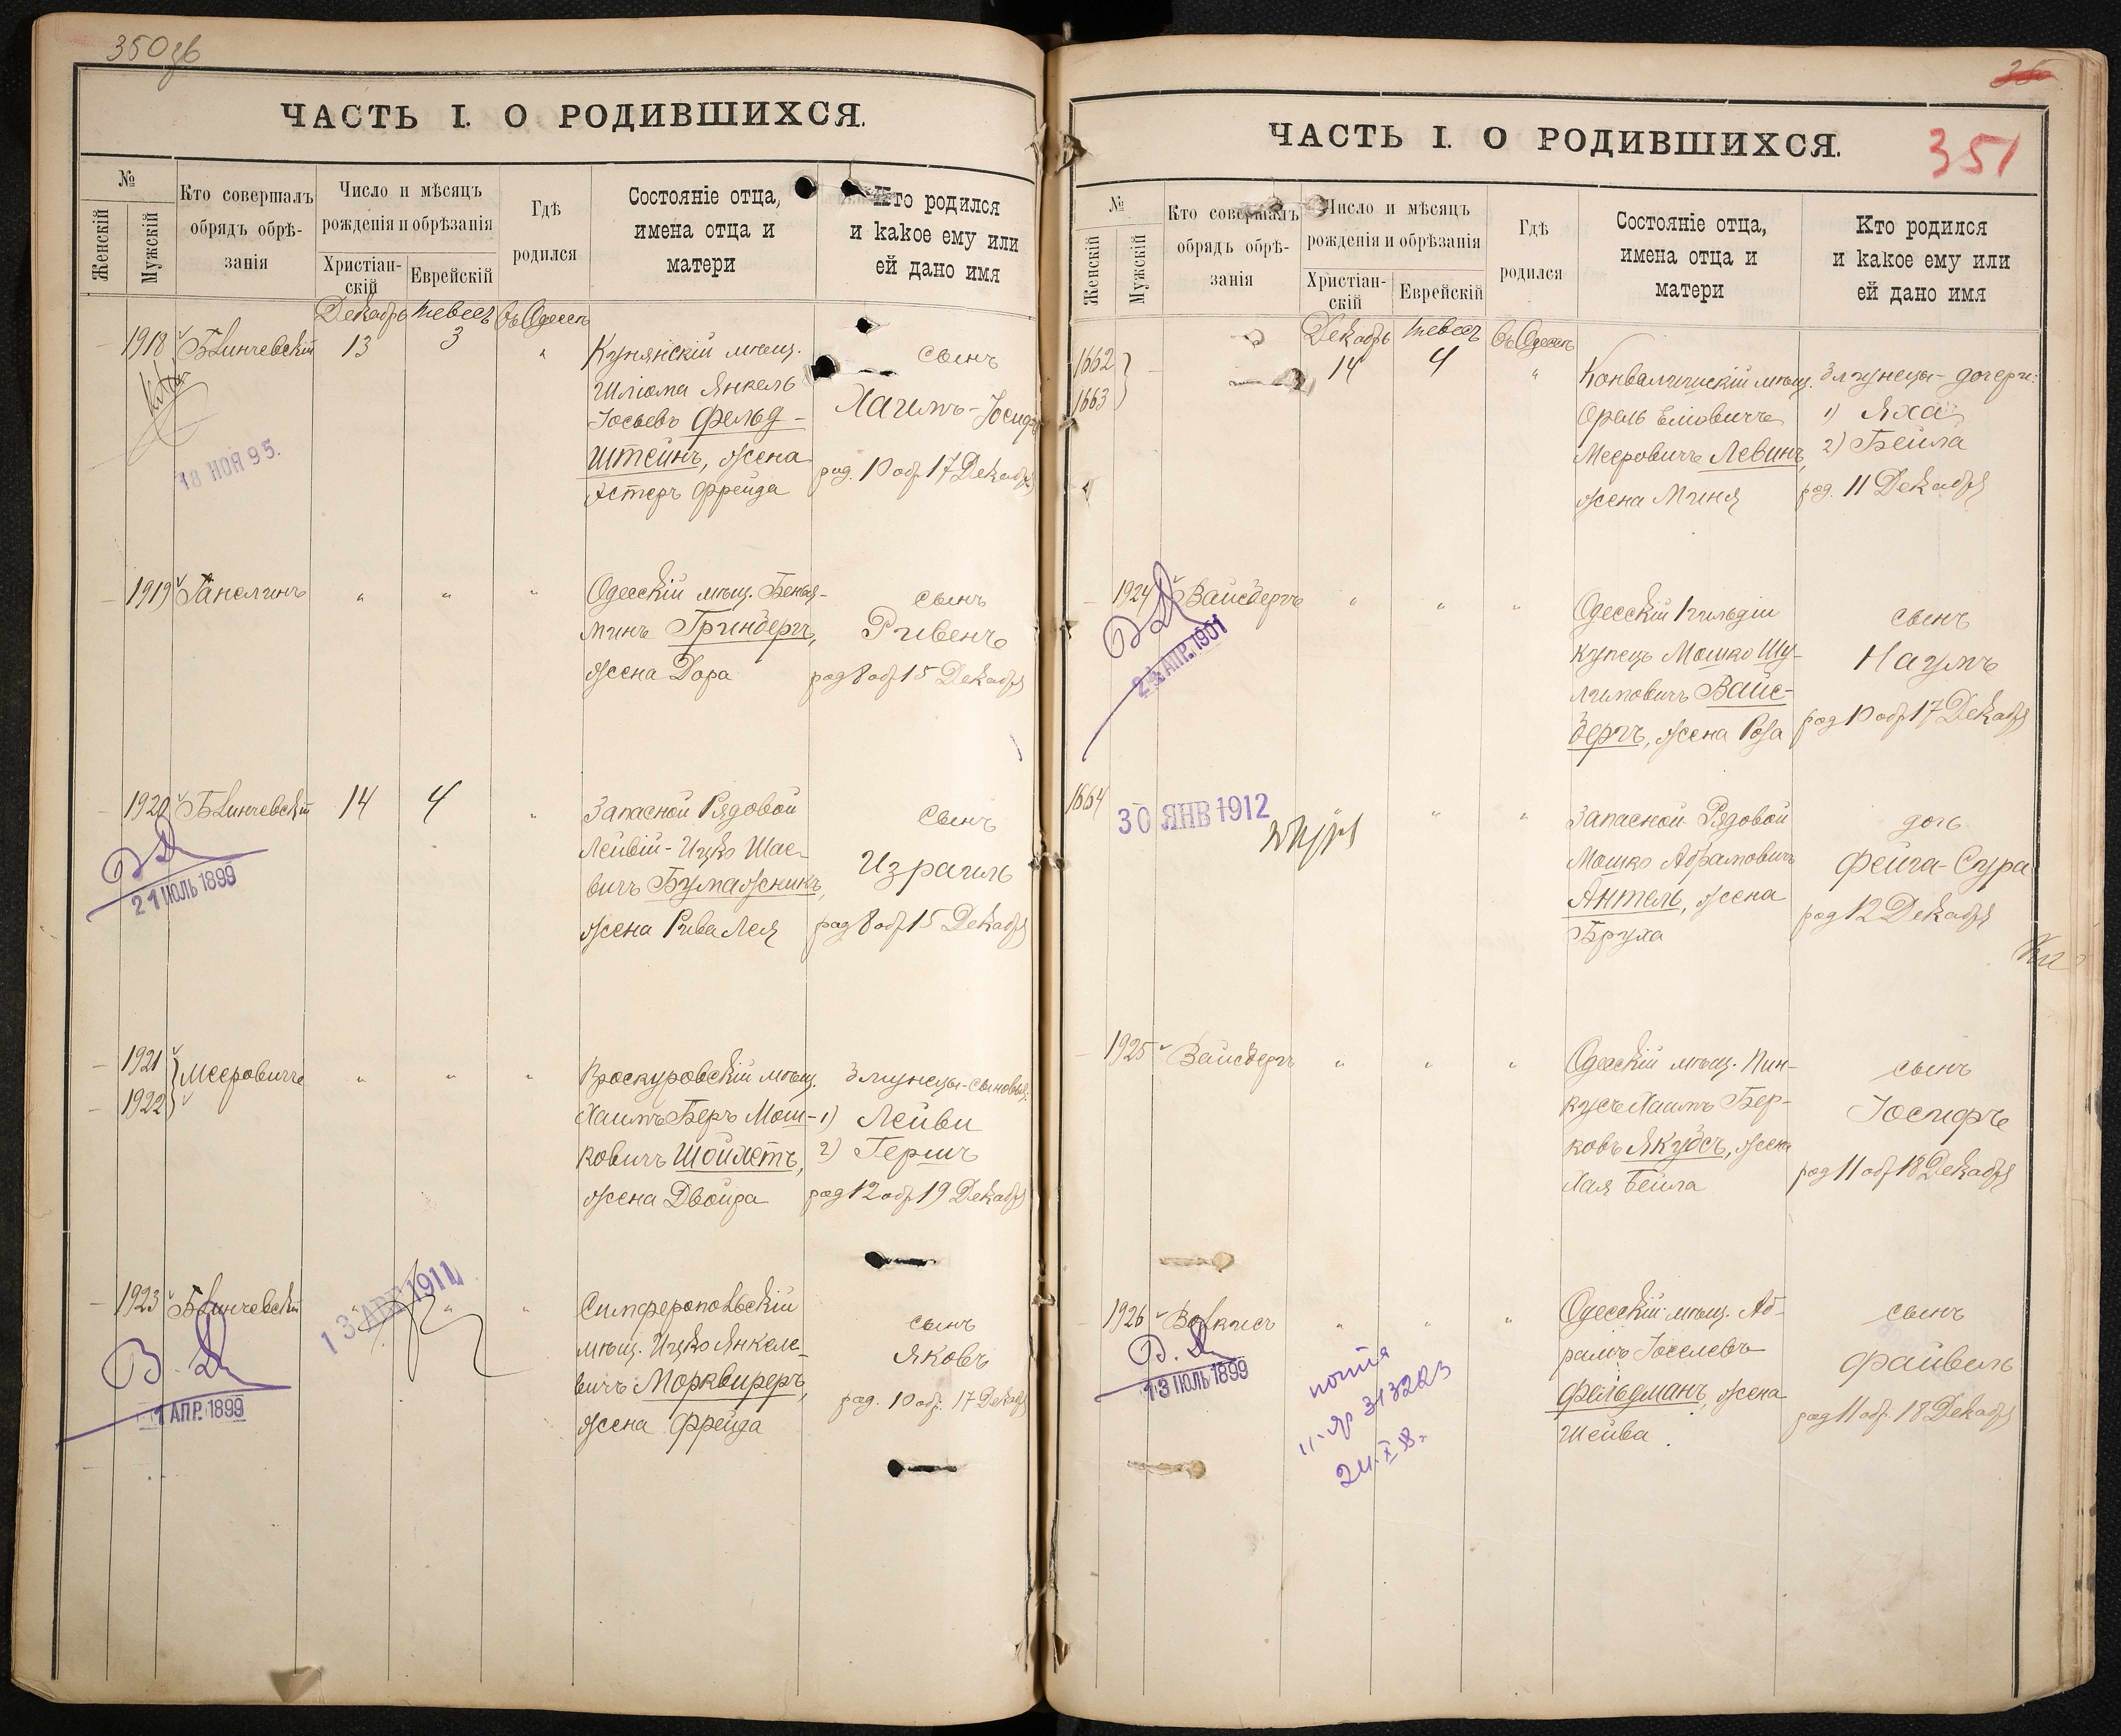 350 об
ЧАСТЬ I. О РОДИВШИХСЯ.
№
Женскій
Мужскій
Кто совершалъ
обрядъ обрѣ-
занія
Число и мѣсяцъ
рожденія и обрѣзанія
Христіан-
скій
Еврейскій
Гдѣ
родился
Состояніе отца,
имена отца и
матери
Кто родился
и какое ему или
ей дано имя
Декабрь Тевесъ Въ Одессѣ
1918 Блинчевскій 13 3 "
Купянскій мѣщ.
Шліома Янкель
Іосьевъ Фельд-
штейнъ, жена
Эстеръ Фрейда
сынъ
Хаимъ-Іосифъ
род. 10 обр. 17 Декабря
18 НОЯ 95.
1919 Ганелинъ " " "
Одесскій мѣщ. Бенья-
минъ Гринбергъ,
жена Дора
сынъ
Рувенъ
род 8 обр 15 Декабря
1920 Блинчевскій 14 4 "
Запасной Рядовой
Лейвій-Ицко Шае-
вичъ Бумажникъ,
жена Рива Лея
сынъ
Израиль
род 8 обр 15 Декабря
21 ІЮЛЬ 1899
1921
1922
Мееровичъ " " "
Проскуровскій мѣщ.
Хаимъ Беръ Мош-
ковичъ Шойхетъ,
жена Двойра
Близнецы-сыновья:
1) Лейви
2) Гершъ
род 12 обр 19 Декабря
1923 Блинчевскій " "
Симферопольскій
мѣщ. Ицко Янкеле-
вичъ Морквиреръ,
жена Фрейда
сынъ
Яковъ
род. 10 обр. 17 Декабря
В. Д
АПР. 1899
1911
351
ЧАСТЬ I. О РОДИВШИХСЯ.
№
Женскій
Мужскій
Кто совершалъ
обрядъ обрѣ-
занія
Число и мѣсяцъ
рожденія и обрѣзанія
Христіан-
скій
Еврейскій
Гдѣ
родился
Состояніе отца,
имена отца и
матери
Кто родился
и какое ему или
ей дано имя
Декабрь Тевесъ Въ Одессѣ
1662
1663
14 4 "
мѣщ.
Мееровичъ Левинъ,
жена Миня
Близнецы-дочери:
1) Яха
2) Бейла
род. 11 Декабря
1924 Вайсбергъ " " "
Одесскій 1 гильдіи
купецъ Мошко Шу-
лимовичъ Вайс-
бергъ, жена Роза
сынъ
Наумъ
род 10 обр 17 Декабря
АПР. 1901
1664
30 ЯНВ 1912
" " "
Запасной Рядовой
Мошко Абрамовичъ
Антель, жена
Бруха
дочь
Фейга-Сура
род 12 Декабря
1925 Вайсбергъ " " "
Одесскій мѣщ. Пин-
кусъ Хаимъ Бер-
ковъ Якубсъ, жена
Хая Бейла
сынъ
Іосифъ
род 11 обр 18 Декабря
1926 Волкисъ " " "
Одесскій мѣщ. Аб-
рамъ Іоселевъ
Фельдманъ, жена
Шейва
сынъ
Файвель
род 11 обр. 18 Декабря
В. Д
13 ІЮЛЬ 1899